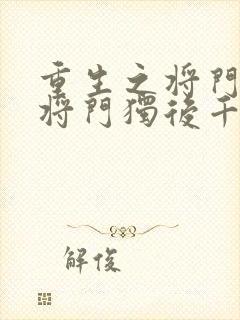 重生之将門
将門獨後千
解俊